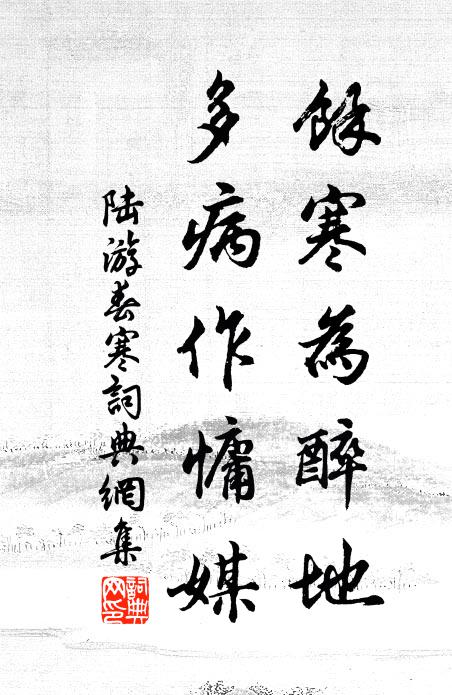 餘寒為醉地
多病作慵媒
陸游春寒詞典網集
詞典
网印